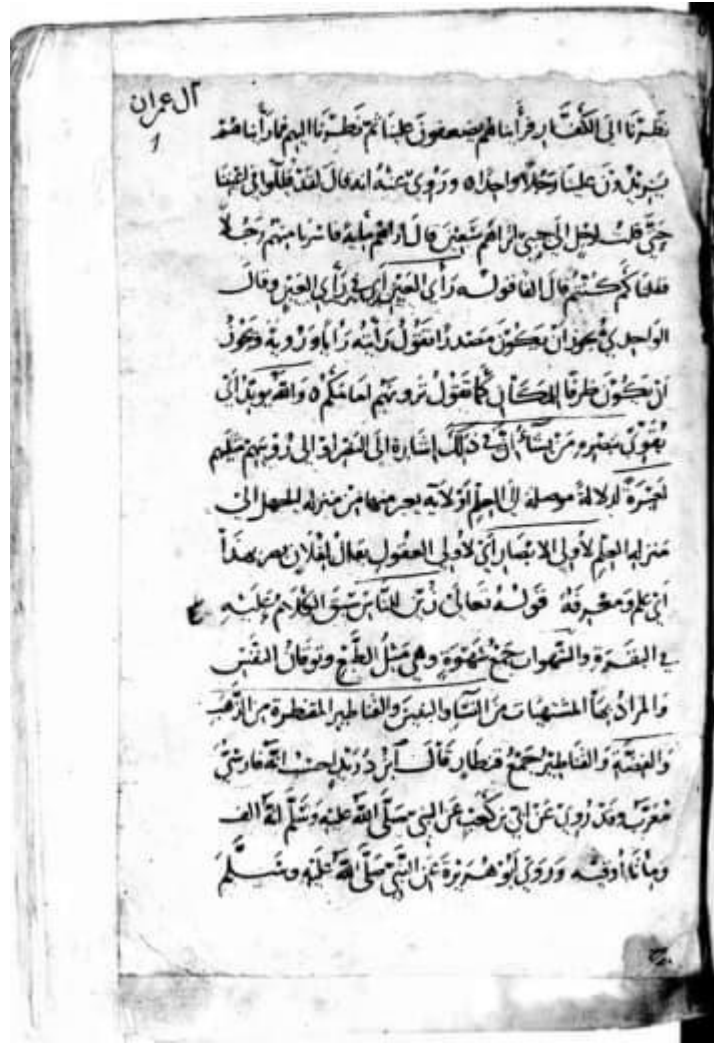 آل عمران
١
نظرنا الى الكفار فرأيناهم يضعفون علينا ثم نظرنا اليهم فما رأيناهم
يزيدون علينا رجلا واحدا ٥ وروي عنه انه قال لقد قللوا في اعيننا
حتى قلت لرجل الى جنبي تراهم سبعين قال اراهم مائة فاسرنا منهم رجلا
فقلنا كم كنتم قال الفا قوله رأي العين اي في رأي العين وقال
الواحدي يجوز ان يكون مصدرا تقول رأيته رأيا ورؤية ويجوز
ان يكون ظرفا للمكان كما تقول ترونهم امامكم ٥ والله يؤيد اي
يقوي بنصره من يشاء ان في ذلك اشارة الى النصر او الى رؤيتهم مثليهم
لعبرة لدلالة موصلة الى العلم او لآية يعبر منها من منزلة الجهل الى
منزلة العلم لأولي الابصار اي لأولي العقول يقال لفلان بصر بهذا
اي علم ومعرفة قوله تعالى زين للناس سبق الكلام عليه
في البقرة والشهوات جمع شهوة وهي ميل الطبع وتوقان النفس
والمراد بها المشتهيات من النساء والبنين والقناطير المقنطرة من الذهب
والفضة والقناطير جمع قنطار قال ابن دريد احسب انه فارسي
معرب وقد روي عن ابي بن كعب عن النبي صلى الله عليه وسلم انه الف
ومائتا أوقية وروى ابو هريرة عن النبي صلى الله عليه وسلم